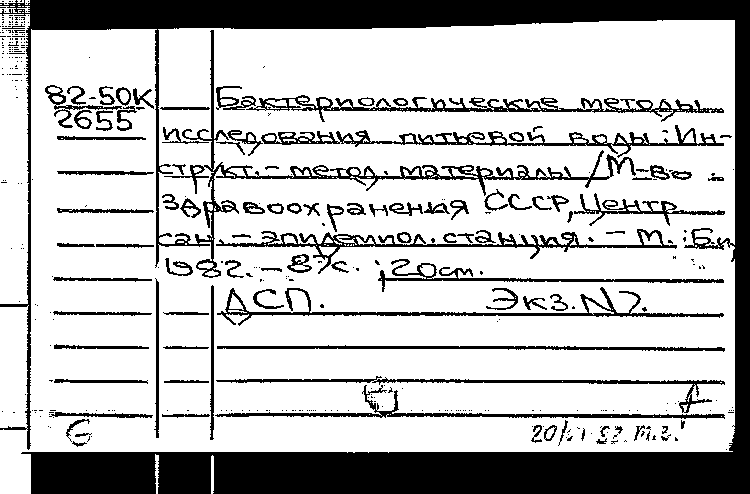 82-50К
2655
Бактериологические методы
исследования питьевой воды: Ин-
структ.-метод. материалы / М-во
здравоохранения СССР, Центр.
сан.-эпидемиол. станция. - М.: Б.и,
1982. - 87с. ; 20см.
ДСП. Экз.N7.